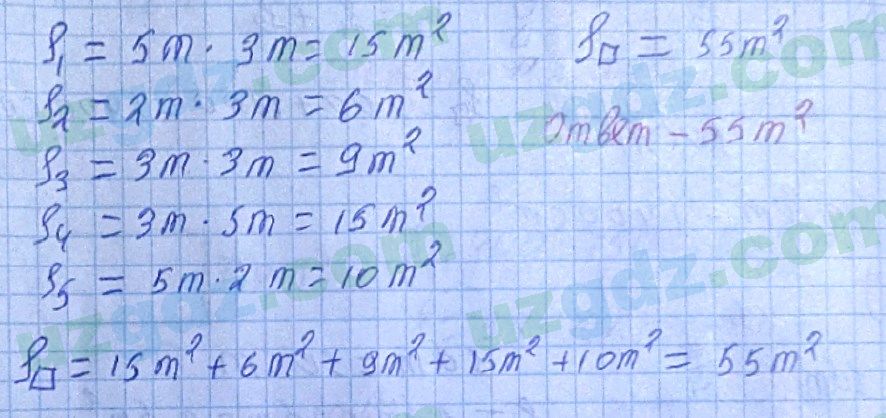 S₁ = 5m · 3m = 15m²
S₂ = 2m · 3m = 6m²
S₃ = 3m · 3m = 9m²
S₄ = 3m · 5m = 15m²
S₅ = 5m · 2m = 10m²
S□ = 15m² + 6m² + 9m² + 15m² + 10m² = 55m²
S□ = 55m²
Ответ – 55m²
uzgdz.com